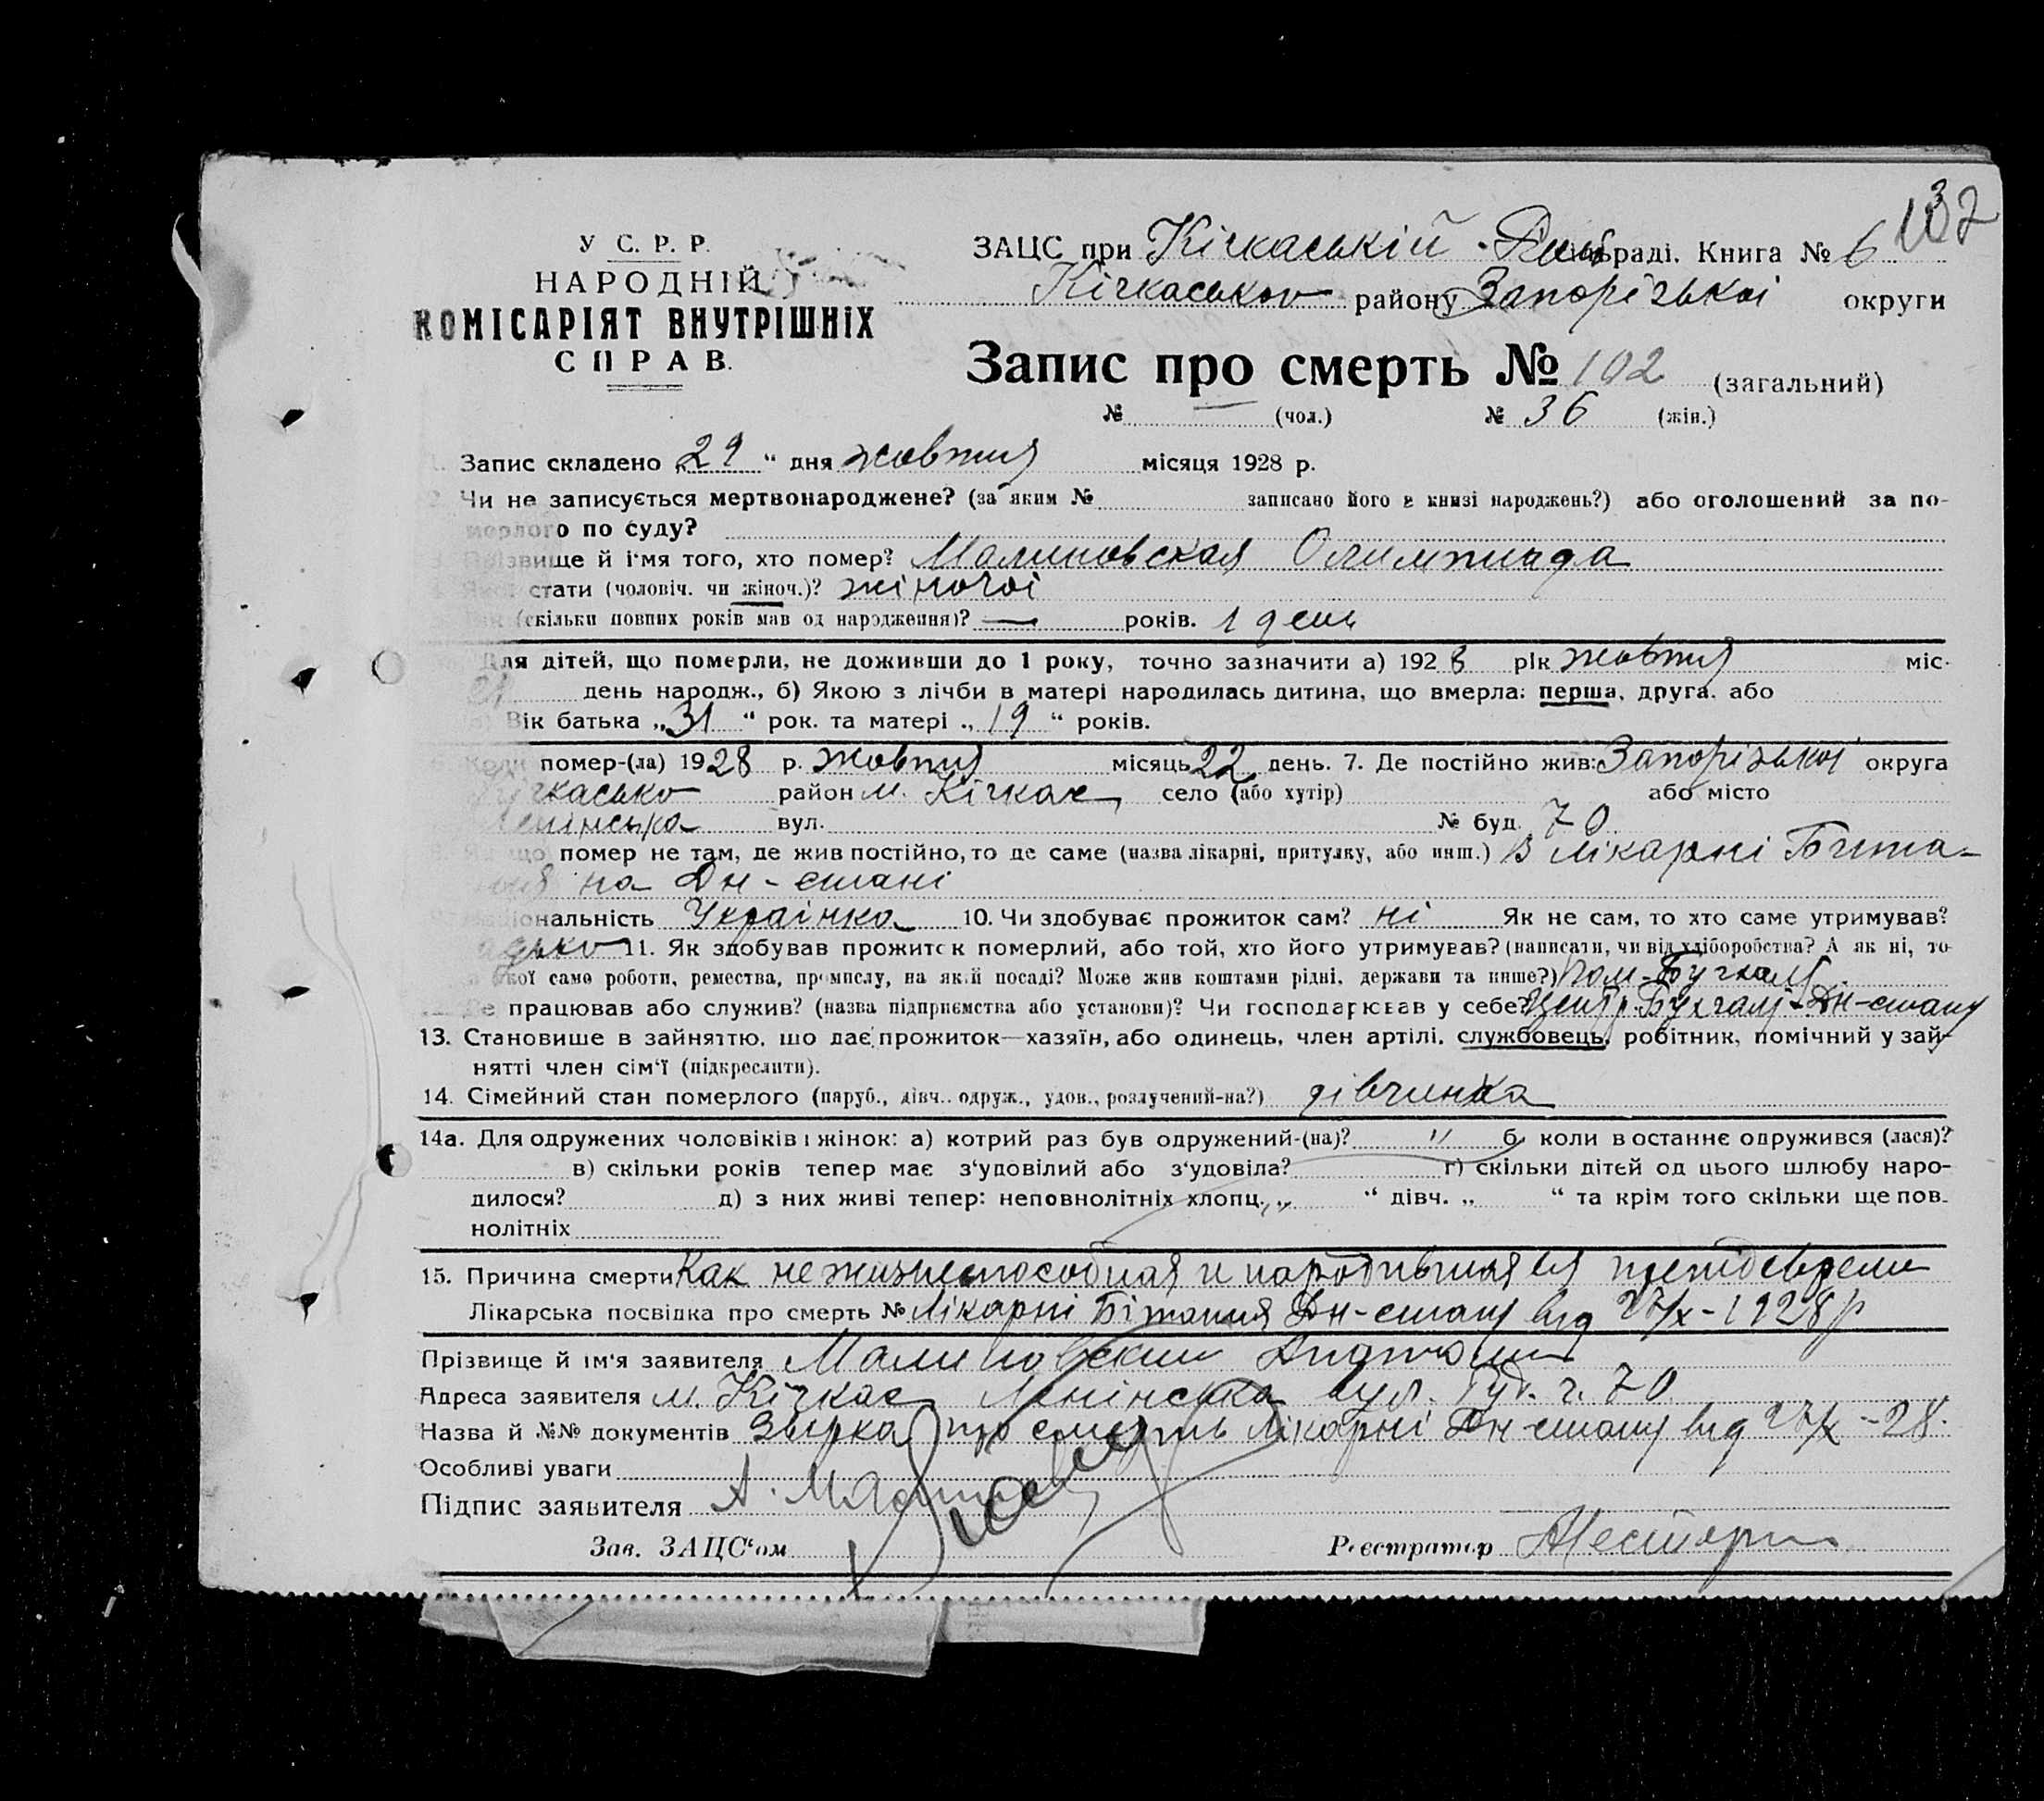 132
У С. Р. Р.
НАРОДНІЙ
КОМІСАРІЯТ ВНУТРІШНІХ
СПРАВ.
ЗАЦС при Кічкаській раді. Книга № 6
Кічкаськом району Запорізькоі округи
Запис про смерть № 102 (загальний)
№ — (чол.) № 36 (жін.)
1. Запис складено „29 “ дня жовтня місяця 1928 р.
2. Чи не записується мертвонароджене? (за яким № записано його в книзі народжень?) або оголошений за по-
мерлого по суду?
3. Прізвище й ім'я того, хто помер? Малиновская Олимпиада
4. Якої стати (чоловіч. чи жіноч.)? жіночоі
(скільки повних років мав од народження)? — років. 1 день
Для дітей, що померли, не доживши до 1 року, точно зазначити а) 1928 рік жовтня міс.
21 день народж., б) Якою з лічби в матері народилась дитина, що вмерла: перша, друга. або
в) Вік батька „31 “ рок. та матері „ 19 “ років.
6. Коли помер-(ла) 1928 р. жовтня місяць 22 день. 7. Де постійно жив: Запорізькоі округа
Кічкасько район м. Кічкас село (або хутір) або місто
Ленінська вул. № буд. 70
8. Якщо помер не там, де жив постійно, то де саме (назва лікарні, притулку, або инш.) В лікарні Бита-
ния на Дн-стані
9. Національність Украінка 10. Чи здобуває прожиток сам? ні Як не сам, то хто саме утримував?
11. Як здобував прожиток померлий, або той, хто його утримував? (написати, чи від хліборобства? А як ні, то
з якої саме роботи, ремества, промислу, на якій посаді? Може жив коштами рідні, держави та инше?) Пом-Бухгалт.
12. Де працював або служив? (назва підприємства або установи)? Чи господарював у себе? Центр. Бухгалт Дн-стану
13. Становише в зайняттю, що дає прожиток—хазяїн, або одинець, член артілі, службовець, робітник, помічний у зай-
нятті член сім'ї (підкреслити).
14. Сімейний стан померлого (паруб., дівч.. одруж., удов., розлучений-на?) дівчинка
14а. Для одружених чоловіків і жінок: а) котрий раз був одружений-(на)? " б) коли в останнє одружився (лася)?
в) скільки років тепер має з'удовілий або з'удовіла? г) скільки дітей од цього шлюбу наро-
дилося? д) з них живі тепер: неповнолітніх хлопц. „ “ дівч. „ “ та крім того скільки ще пов-
нолітніх
15. Причина смерти Как нежизнеспособная и народившаяся
Лікарська посвідка про смерть № Лікарні Бітания Дн-стану від 27/X-1928 р
Прізвище й ім'я заявителя Малиновский
Адреса заявителя м. Кічкас Ленінська вул. Буд. ч. 70
Назва й №№ документів про смерть Лікарні Дн-стану від 27/X-28.
Особливі уваги
Підпис заявителя А.
Зав. ЗАЦС'ом Реєстратор